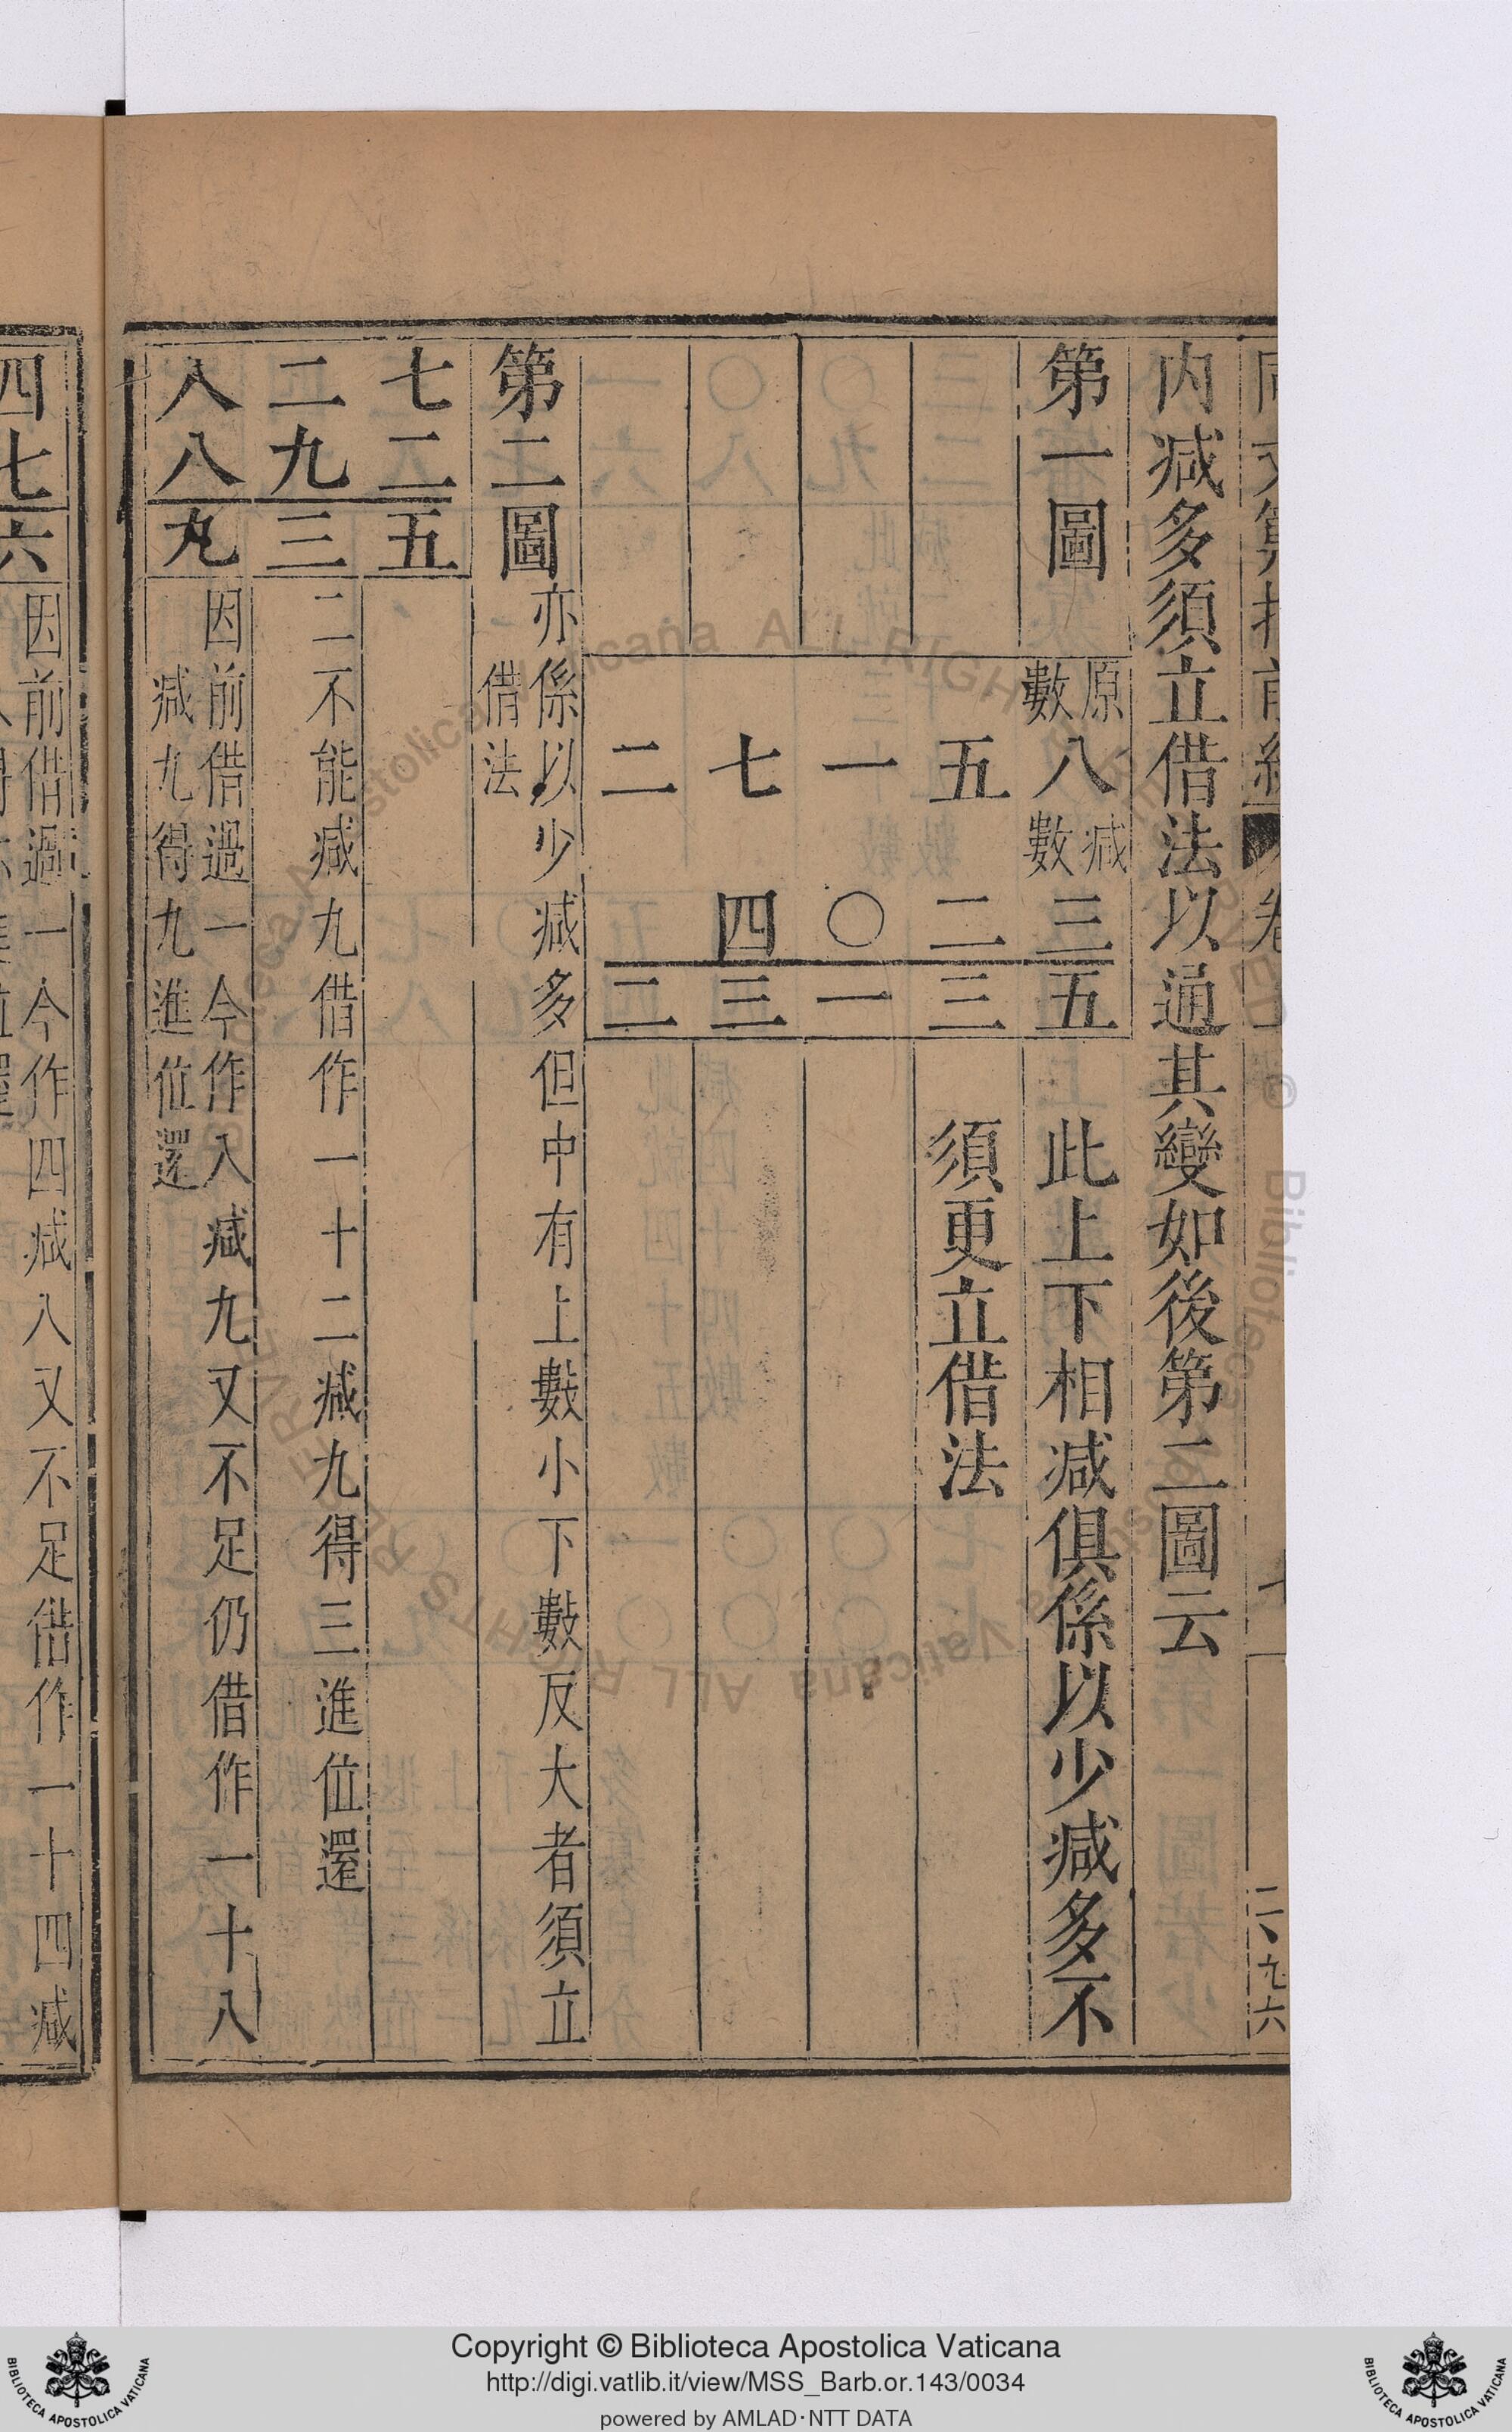 内减多須立借法以通其變如後第二圖云
第一圖 原數八减數三五 此上下相减俱係以少减多不
五二三 須更立借法
一〇一
七四三
二 二
第二圖 亦係以少减多但中有上數小下數反大者須立
借法
七二五
二九三 二不能减九借作一十二减九得三進位還
八八九 因前借過一今作八减九又不足仍借作一十八
减九得九進位還
四七六 因前借過一今作四减八又不足借作一十四减
二 九六
Copyright © Biblioteca Apostolica Vaticana
http://digi.vatlib.it/view/MSS_Barb.or.143/0034
powered by AMLAD·NTT DATA
BIBLIOTECA APOSTOLICA VATICANA
BIBLIOTECA APOSTOLICA VATICANA